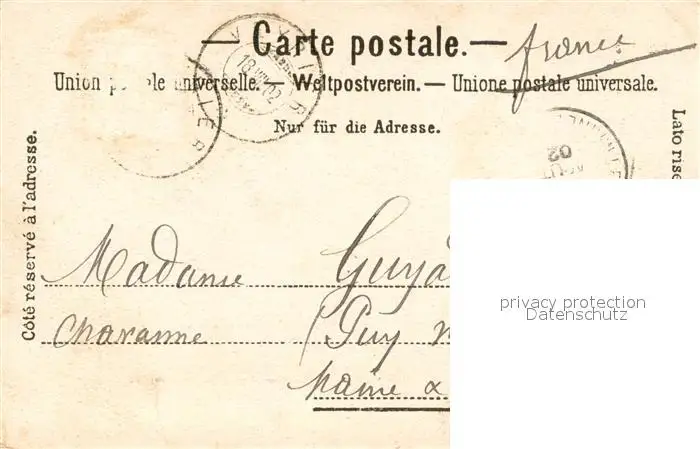 — Carte postale. — france
Union postale universelle. — Weltpostverein. — Unione postale universale.
Nur für die Adresse.
Côté réservé à l'adresse.
Lato rise
18 VIII 02
02
Madame Guyá
Charanne Puy
Maine &
privacy protection
Datenschutz